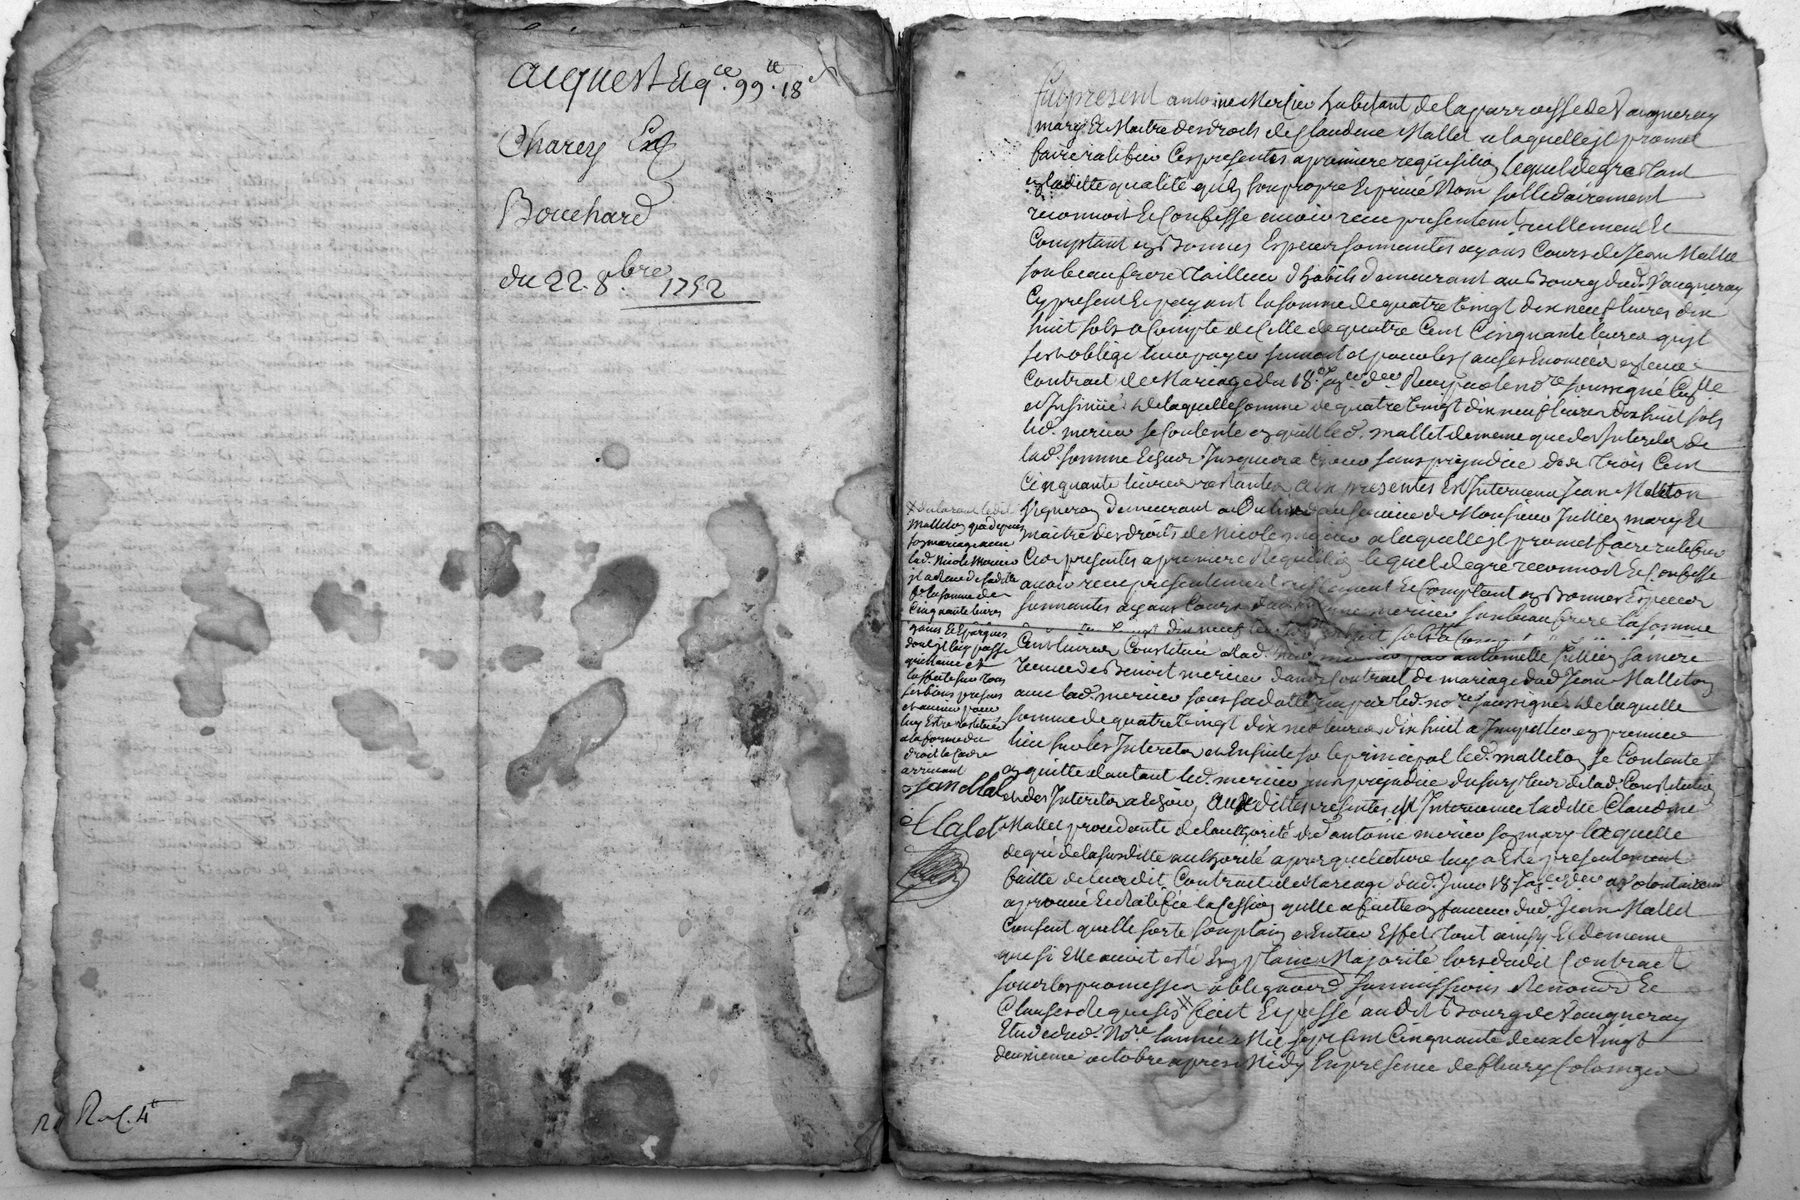 acquest Eq.ce 99.tt 18.s
Charey Exp
Bouchard
du 22. 8.bre 1752
R.
Rec. 4tt
fut present antoine Mercier habitant de la parroisse de Vaugneray
mary Et Maitre des droits de Claudine Mallet a laquelle jl promet
faire ratifier Ces presentes a premiere requisition lequel de gre tant
en laditte qualité qu'en son propre Et privé Nom sollidairement
reconnoit Et Confesse auoir receu presentement reellement Et
Comptant en Bonnes Especes sonnantes ayans Cours de Jean Mallet
son beaufrere tailleur d'habits demeurant au Bourg dud. Vaugneray
Cy present Et payant la somme de quatre Vingt dix neuf liures dix
huit sols a Compte de Celle de quatre Cent Cinquante liures qu'jl
s'est oblige luy payer suivant et pour les causes Enoncées en leur
Contrat de Mariage du 18.e Receu par le no.re soussigné
et Insinué de laquelle somme de quatre Vingt dix neuf liures dix huit sols
led. mercier se Contente en quitte led. mallet de meme que des Interets de
lad. somme Echeus Jusques a Ce jour sans prejudice des trois Cent
Cinquante liures restantes aux presentes Est Intervenu Jean Malleton
Vigneron demeurant a de Monsieur Jullien mary Et
maitre des droits de Nicole mercier a laquelle jl promet faire ratifier
Ces presentes a premiere Requisition lequel de gre reconnoit Et Confesse
auoir receu presentement reellement Et Comptant en Bonnes Especes
sonnantes ayans Cours dud. antoine mercier son beaufrere la somme
de quatre Vingt dix neuf liures dix huit sols a Compte
Cent liures Constituée a lad. Nicole mercier par antoinette Jullien sa mere
veuve de Benoit mercier dans le Contrat de mariage dud. Jean Malleton
auec lad. mercier sous sa datte receu par led. no.re soussigné de laquelle
somme de quatre Vingt dix neuf liures dix huit a Imputer en premier
lieu sur les Interets et Ensuite sur le principal led. malleton se Contente
en quitte d'autant led. mercier sans prejudice du surplus de lad. Constitution
et des Interets a Echoir, aux dittes presentes est Intervenue laditte Claudine
Mallet procedante de l'authorité dud. antoine mercier son mary laquelle
de gré de la susditte authorité apres que lecture luy a Eté presentement
faitte de leur dit Contract de Mariage dud. Jour 18. a Volontairement
aprouué Et Ratifié la Cession qu'elle a faitte en faueur dud. Jean Mallet
Consent qu'elle sorte son plain et Entier Effet tout ainsy Et de meme
que si Elle auoit eté En plaine Majorité lors dudit Contract
sous les promesses obligaons soumissions Renonons Et
Clauses requises # fait Et passé au dit Bourg de Vaugneray
Etude dud. No.re l'année Mil sept Cent Cinquante deux le Vingt
deuxieme octobre apres Midy En presence de fleury Colomger
# declarant ledit
Malleton que depuis
son mariage auec
lad. Nicole Mercier
jl a Receu de laditte
la somme de
Cinquante liures
dont jl luy passe
quittance et
l'affecte sur tous
ses biens presens
et auenir pour
luy Estre restituée
a la forme du
droit le Cas
arriuant
Jean Mal
Malet